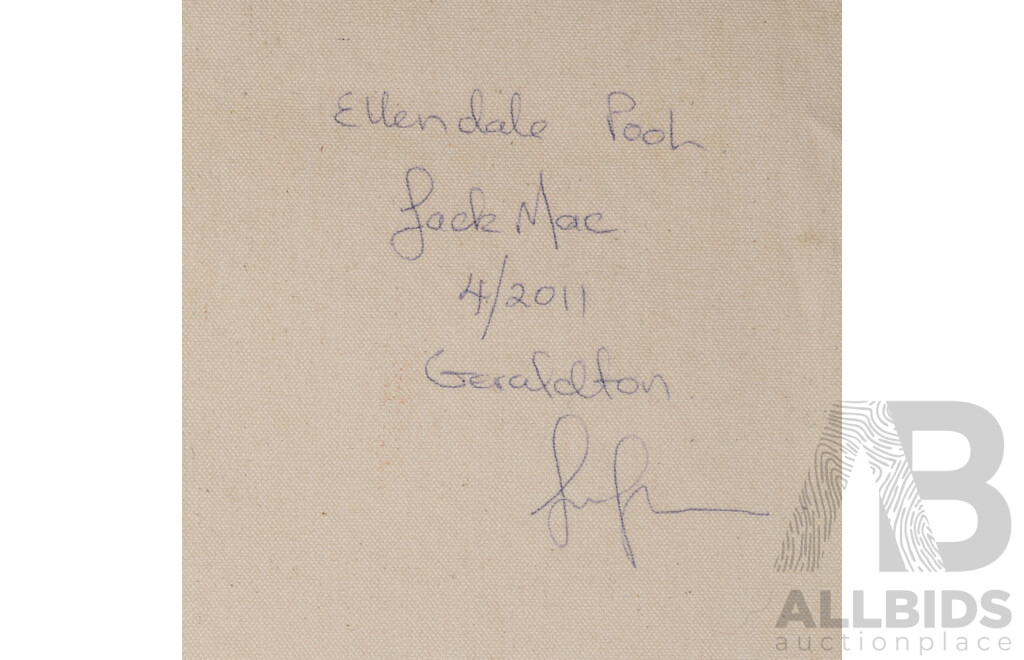 Ellendale Pool
Jack Mac
4/2011
Geraldton
AB
ALLBIDS
auctionplace